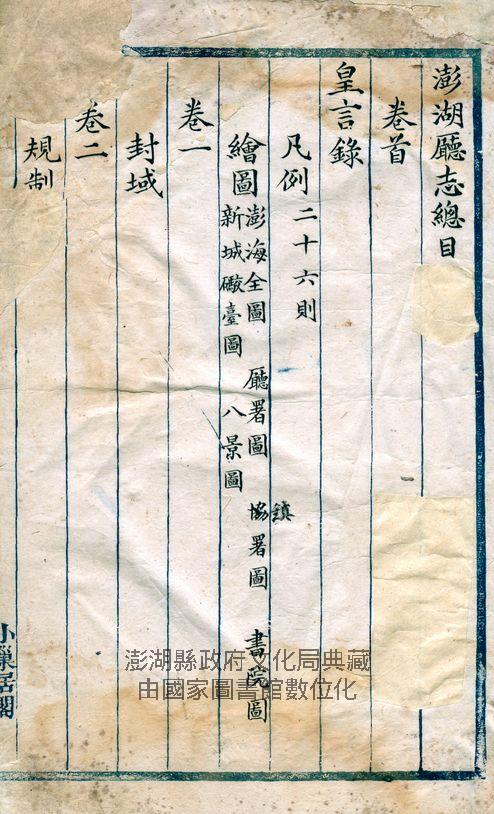 澎湖廳志總目
卷首
皇言錄
凡例 二十六則
繪圖 澎海全圖 廳署圖 鎮協署圖 書院圖
新城礮臺圖 八景圖
卷一
封域
卷二
規制
小巢居閣
澎湖縣政府文化局典藏
由國家圖書館數位化